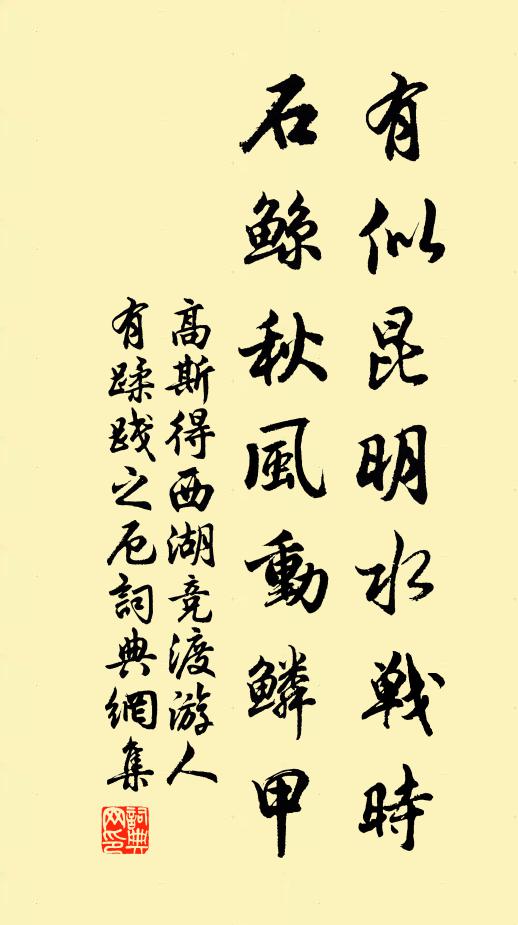 有似昆明水戦時
石鯨秋風動鱗甲
高斯得西湖竞渡游人
有蹂踐之厄詞典網集
詞典
网印